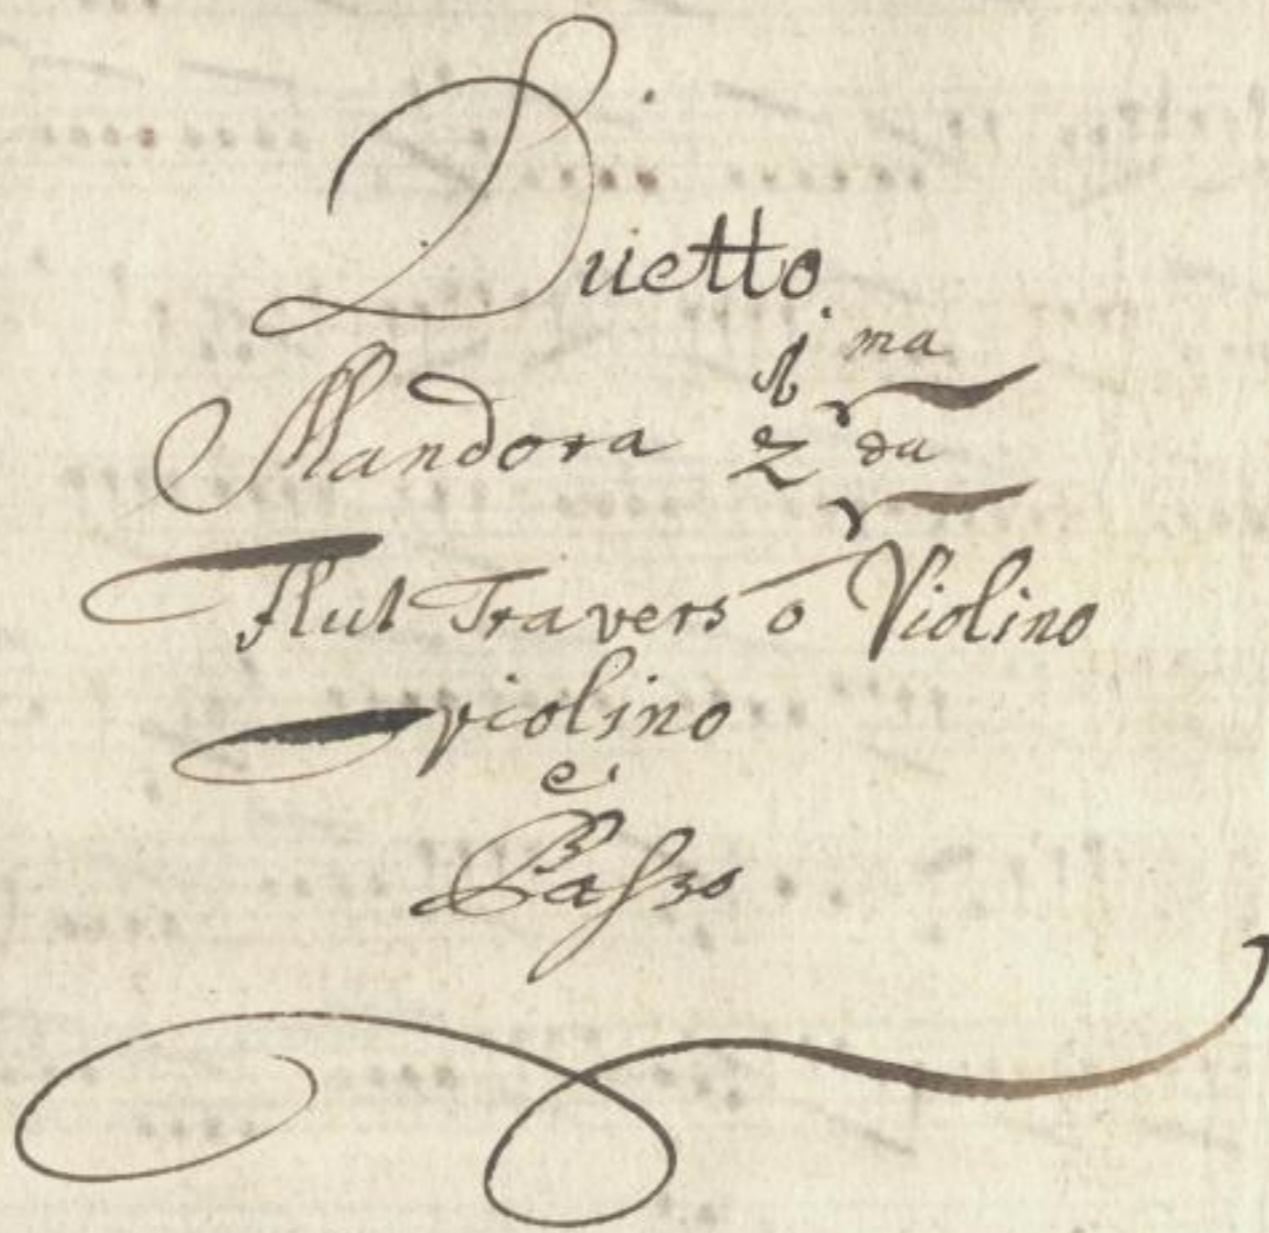 Duetto.
1 ma
Mandora 2 da
Flut Travers o Violino
violino
e
Baſso